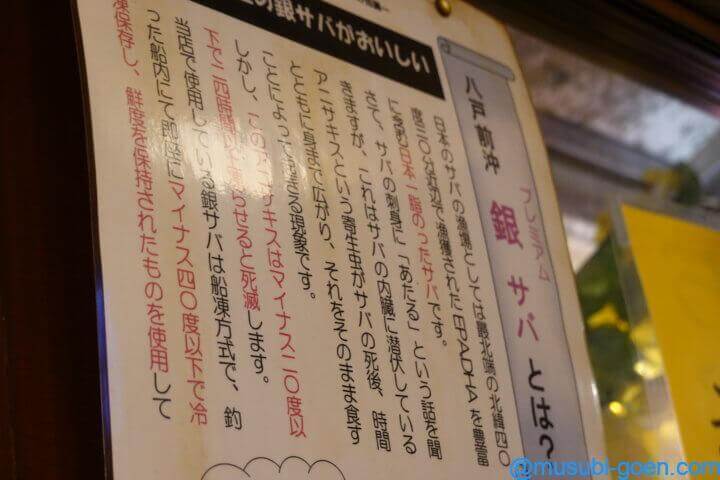 八戸前沖
プレミアム
銀サバとは?
の銀サバがおいしい
日本のサバの漁場としては最北端の北緯四〇
度三〇分付近で漁獲されたEPADHAを豊富
に含む日本一脂ののったサバです。
さて、サバの刺身に「あたる」という話を聞
きますが、これはサバの内臓に潜伏している
アニサキスという寄生虫がサバの死後、時間
とともに身まで広がり、それをそのまま食す
ことによっておきる現象です。
しかし、このアニサキスはマイナス二〇度以
下で二四時間以上凍らせると死滅します。
当店で使用している銀サバは船凍方式で、釣
った船内にて即座にマイナス四〇度以下で冷
凍保存し、鮮度を保持されたものを使用して
@musubi-goen.com